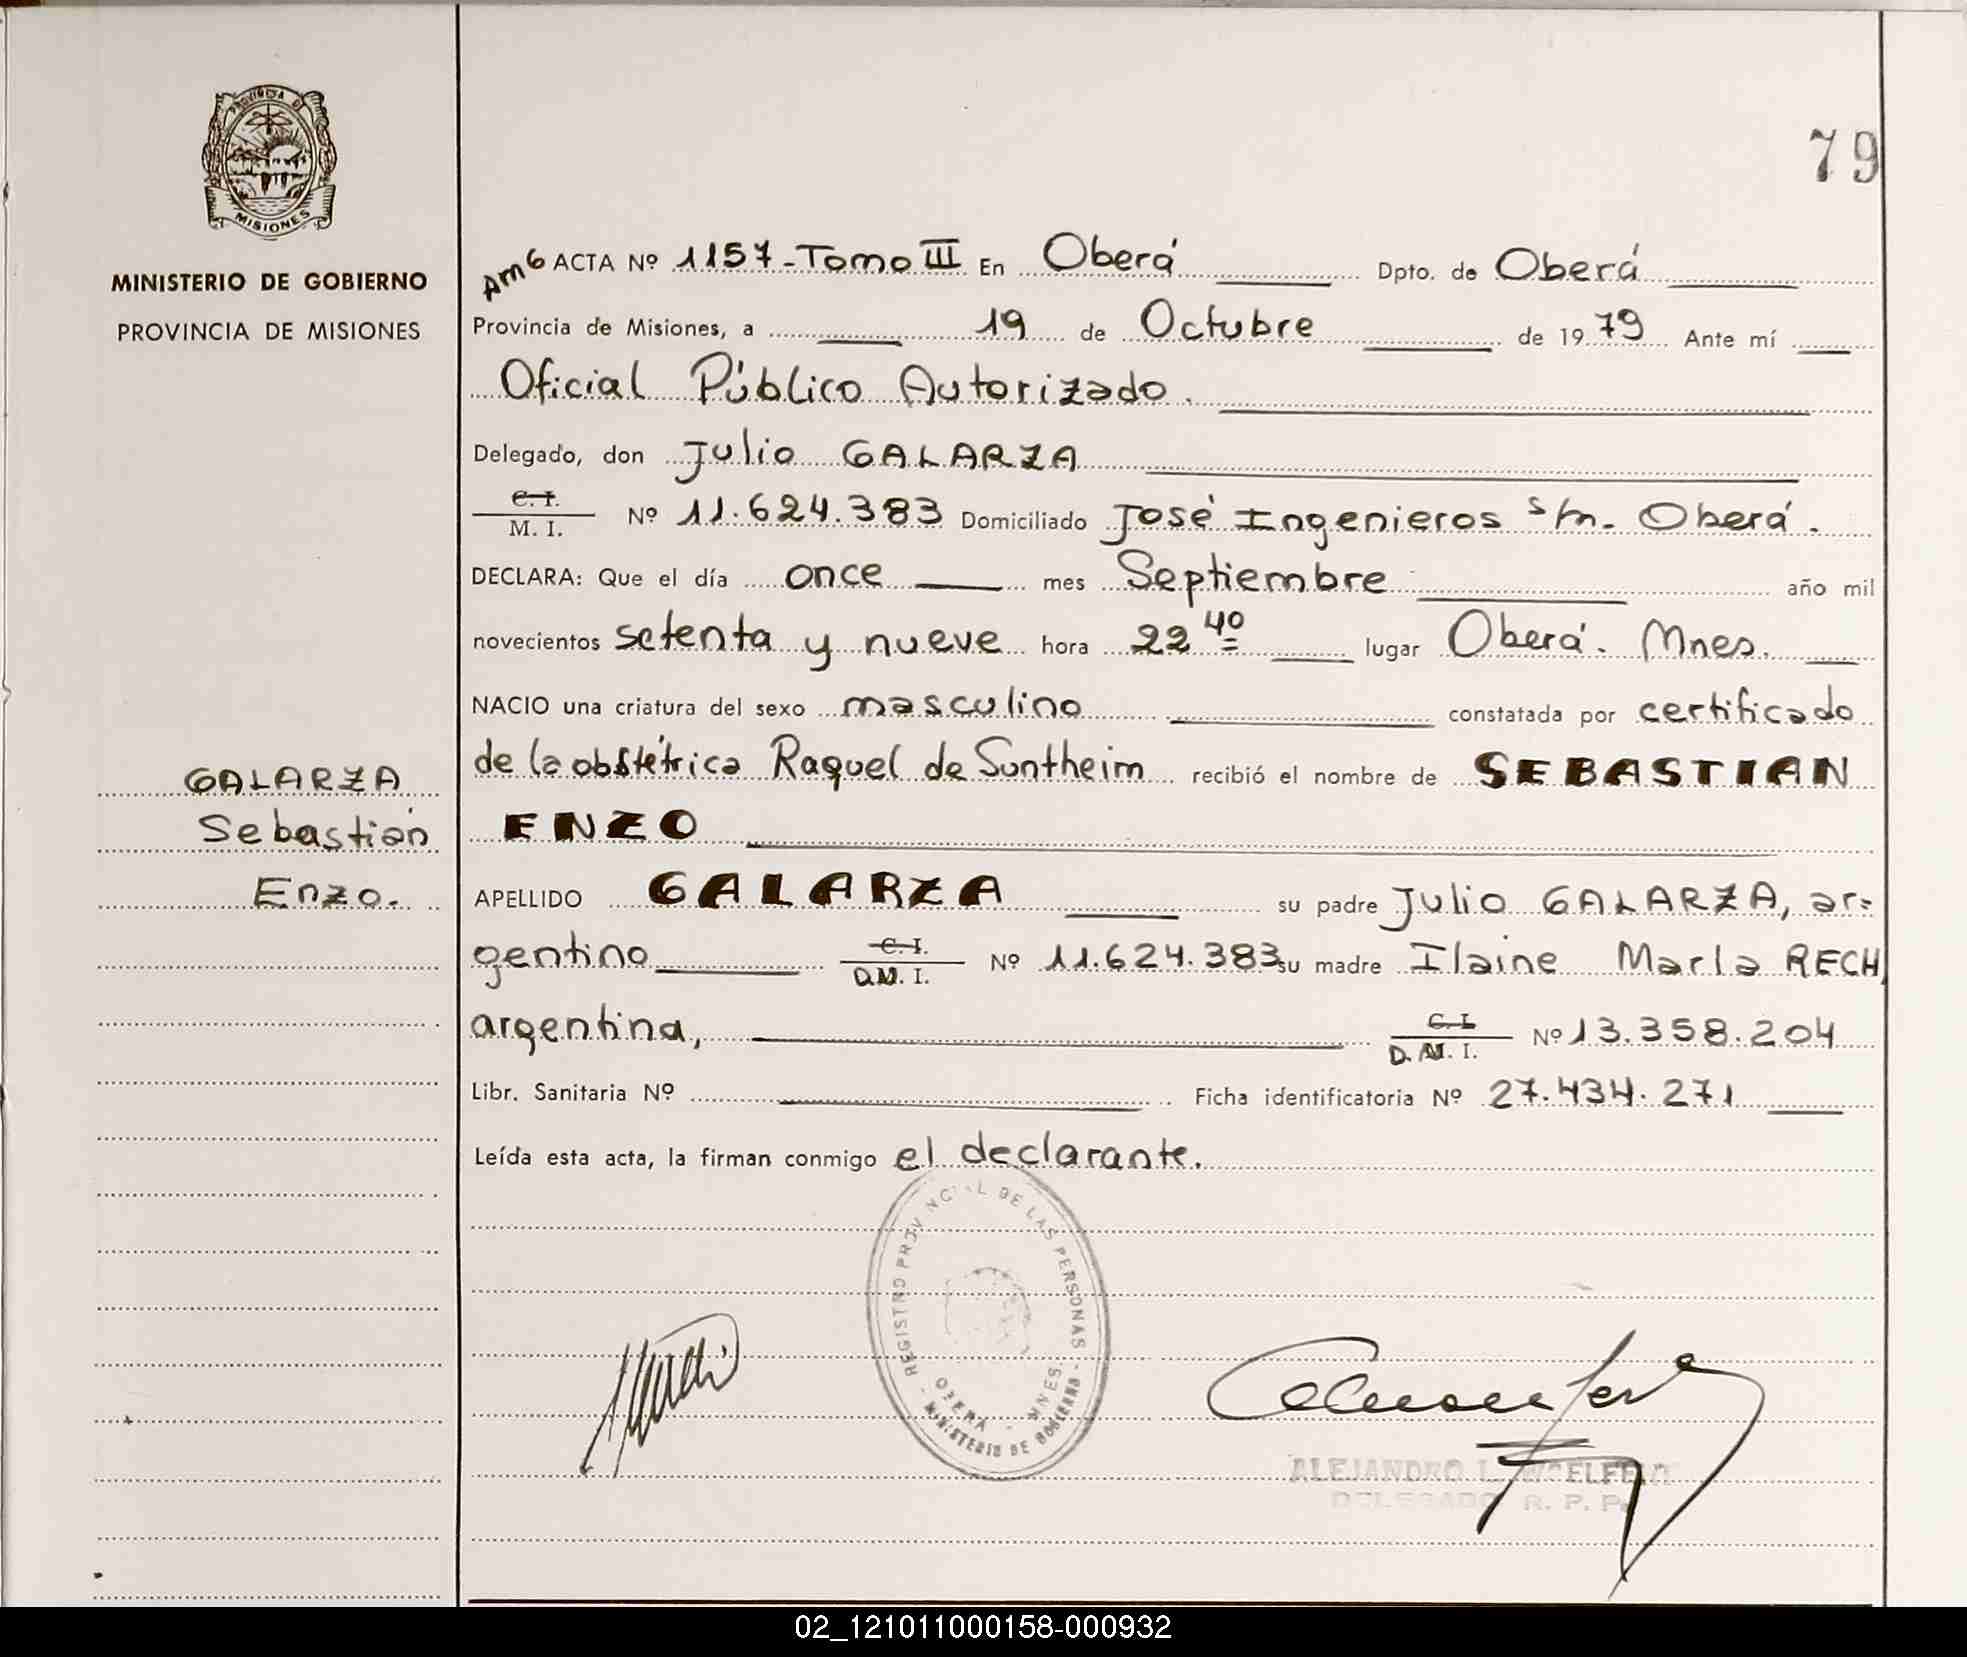 PROVINCIA DE
MISIONES
MINISTERIO DE GOBIERNO
PROVINCIA DE MISIONES
GALARZA
Sebastián
Enzo.
79
Am6 ACTA Nº 1157-Tomo III En Oberá Dpto. de Oberá
Provincia de Misiones, a 19 de Octubre de 1979 Ante mí
Oficial Público Autorizado.
Delegado, don Julio GALARZA
C. I.
M. I. Nº 11.624.383 Domiciliado José Ingenieros s/n. Oberá.
DECLARA: Que el día once mes Septiembre año mil
novecientos setenta y nueve hora 22 40 lugar Oberá. Mnes.
NACIO una criatura del sexo masculino constatada por certificado
de la obstétrica Raquel de Suntheim recibió el nombre de SEBASTIAN
ENZO
APELLIDO GALARZA su padre Julio GALARZA, ar=
gentino C. I. D.M. I. Nº 11.624.383 su madre Ilaine Marla RECH,
argentina, C. I. D. M. I. Nº 13.358.204
Libr. Sanitaria Nº Ficha identificatoria Nº 27.434.271
Leída esta acta, la firman conmigo el declarante.
REGISTRO PROVINCIAL DE LAS PERSONAS
OBERÁ - MNES.
MINISTERIO DE GOBIERNO
ALEJANDRO L.
DELEGADO R. P. P.
02_121011000158-000932